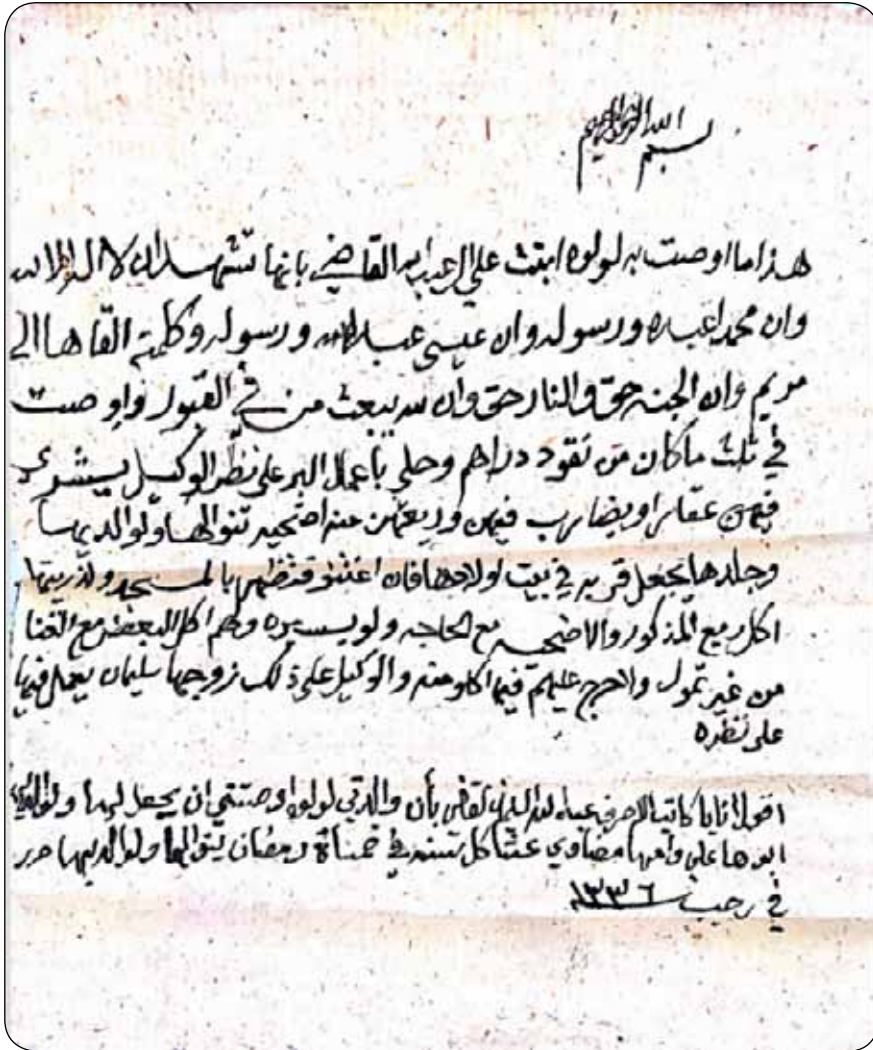 بسم الله الرحمن الرحيم
هذا ما اوصت به لولوه ابنت علي العبد الله القاضي بانها تشهد ان لا اله الا الله
وان محمدا عبده ورسوله وان عيسى عبد الله ورسوله وكلمته القاها الى
مريم وان الجنه حق والنار حق وان الله يبعث من في القبور واوصت
في ثلث ما كان من نقود دراهم وحلي باعمال البر على نظر الوكيل يشترى
فيهن عقار او يضارب فيهن وريعهن عنه اضحيه تنوالها ولوالديها
وجلدها يجعل قربه في بيت اولادها فان اغتنو فتظهر بالمسجد ولذريتها
اكل ريع المذكور والاضحيه مع الحاجه ولو يسيره ولهم اكل البعض مع الغنا
من غير تمول ولا حرج عليهم فيما اكلو منه والوكيل على ذلك زوجها سليمان يعمل فيها
على نظره
اقول انا يا كاتب الاحرف عبد الله السليمان القاضي بأن والدتي لولوه اوصتني ان يجعل لها ولوالديها
ابوها علي وامها مضاوي عشا كل سنه في رمضان ينوالها ولوالديها حرر
في رجب ١٣٣٦